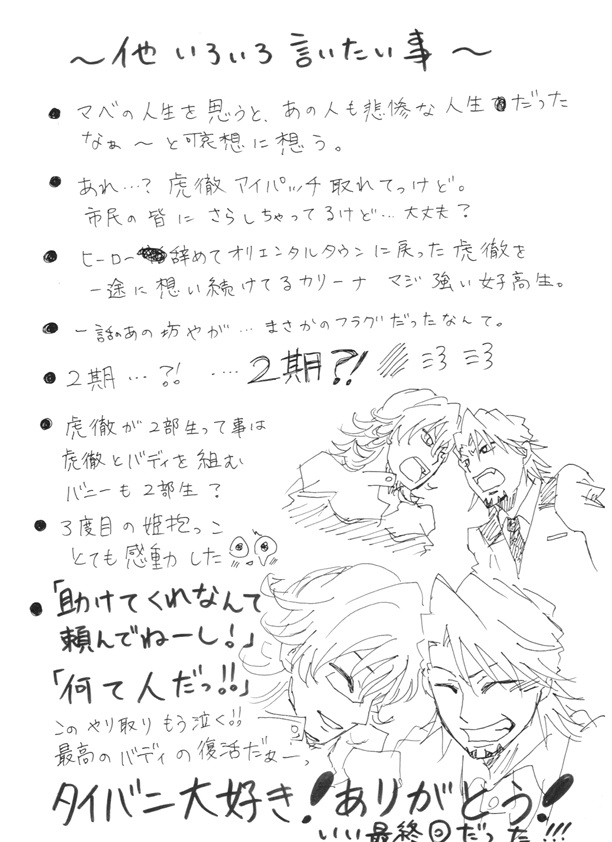 ～他 いろいろ 言いたい事～
● マベの人生を思うと、あの人も悲惨な人生だった
なぁ～と可哀想に想う。
● あれ…? 虎徹 アイパッチ 取れてっけど。
市民の皆に さらしちゃってるけど… 大丈夫?
● ヒーロー辞めてオリエンタルタウンに戻った虎徹を
一途に想い続けてるカリーナ マジ強い女子高生。
● 一話のあの坊やが… まさかのフラグだったなんて。
● 2期…?! ‥‥2期?!
● 虎徹が2部生って事は
虎徹とバディを組む
バニーも2部生?
● 3度目の姫抱っこ
とても感動した
● 「助けてくれなんて
頼んでねーし!」
「何て人だっ!!」
このやり取りもう泣く!!
最高のバディの復活だぁーっ
タイバニ大好き!ありがとう!
いい最終回だった!!!